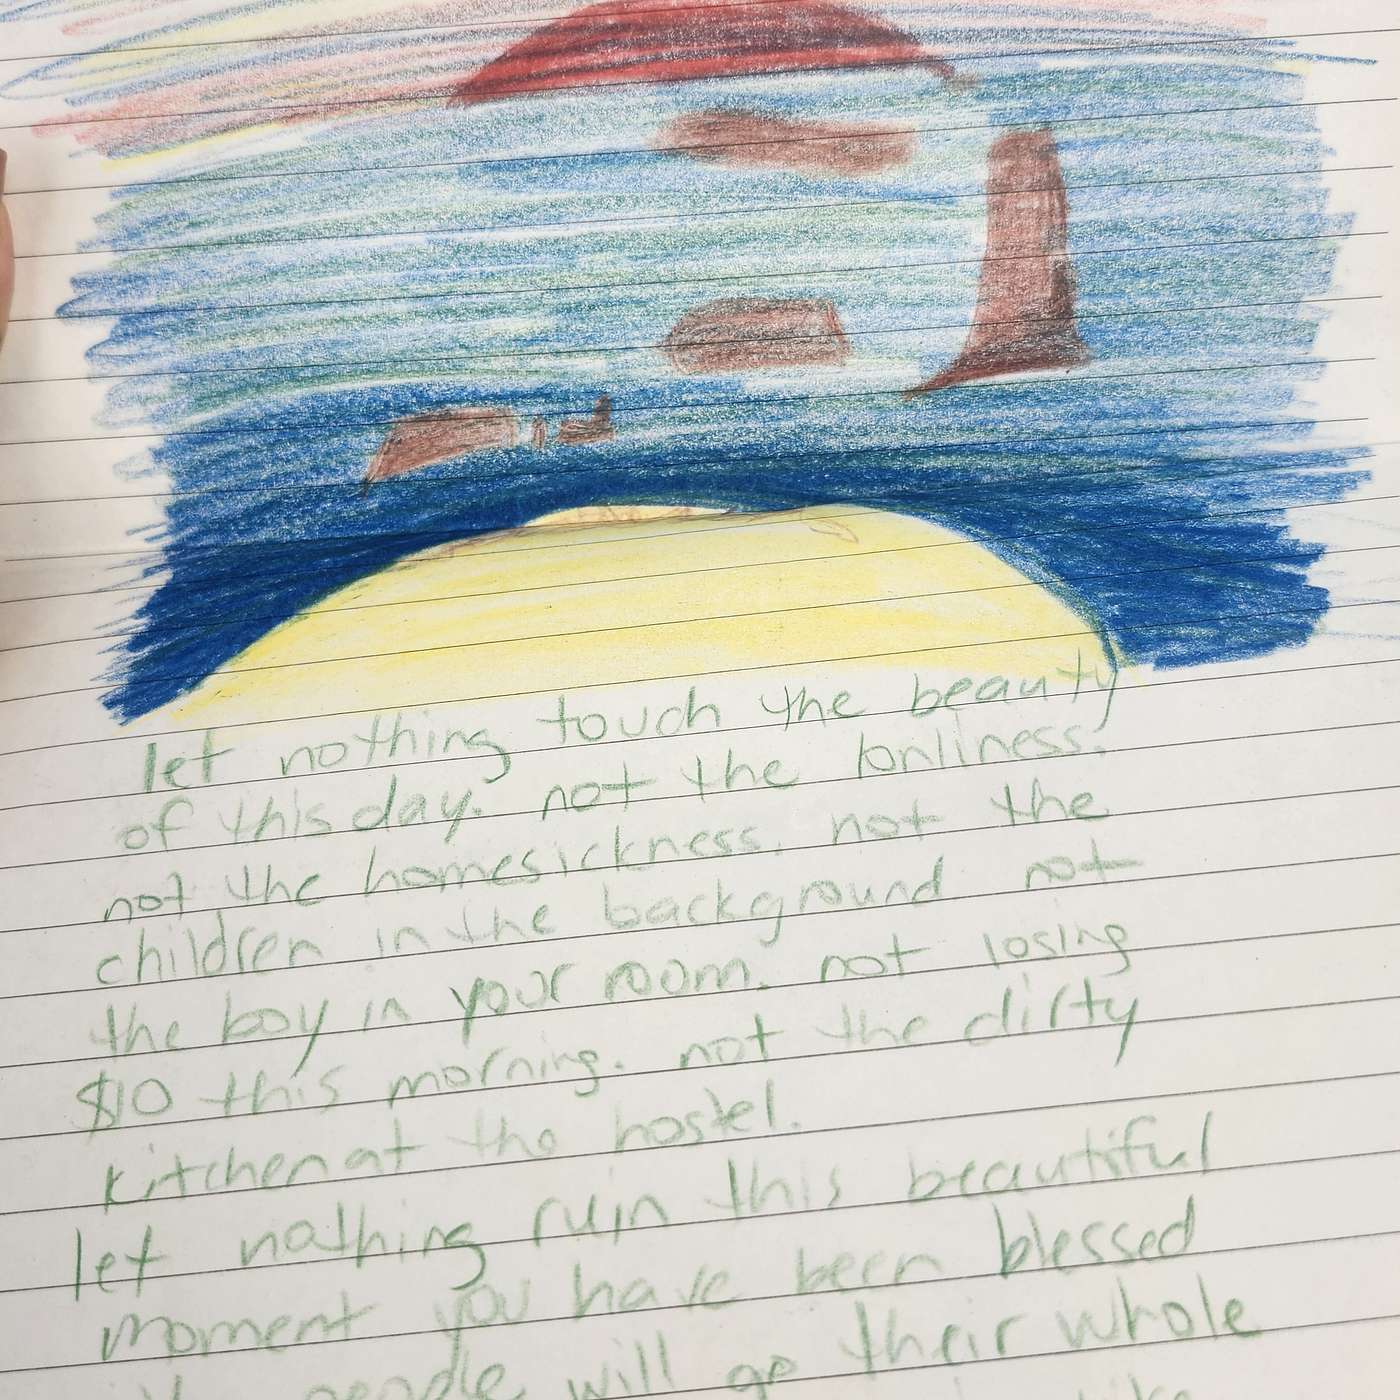 let nothing touch the beauty
of this day. not the lonliness.
not the homesickness. not the
children in the background not
the boy in your room. not losing
$10 this morning. not the dirty
kitchen at the hostel.
let nothing ruin this beautiful
moment you have been blessed
people will go their whole
like